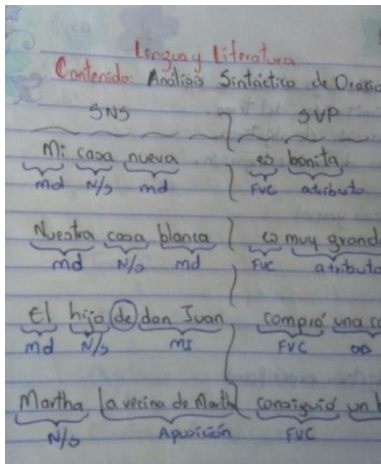 Lengua y Literatura
Contenido: Análisis Sintáctico de Oracio
SNS SVP
Mi casa nueva es bonita
md N/s md FVC atributo
Nuestra casa blanca es muy grand
md N/s md FVC atributo
El hijo de don Juan compró una ca
md N/s MI FVC OD
Martha la vecina de Marth consiguió un
N/s Aposición FVC